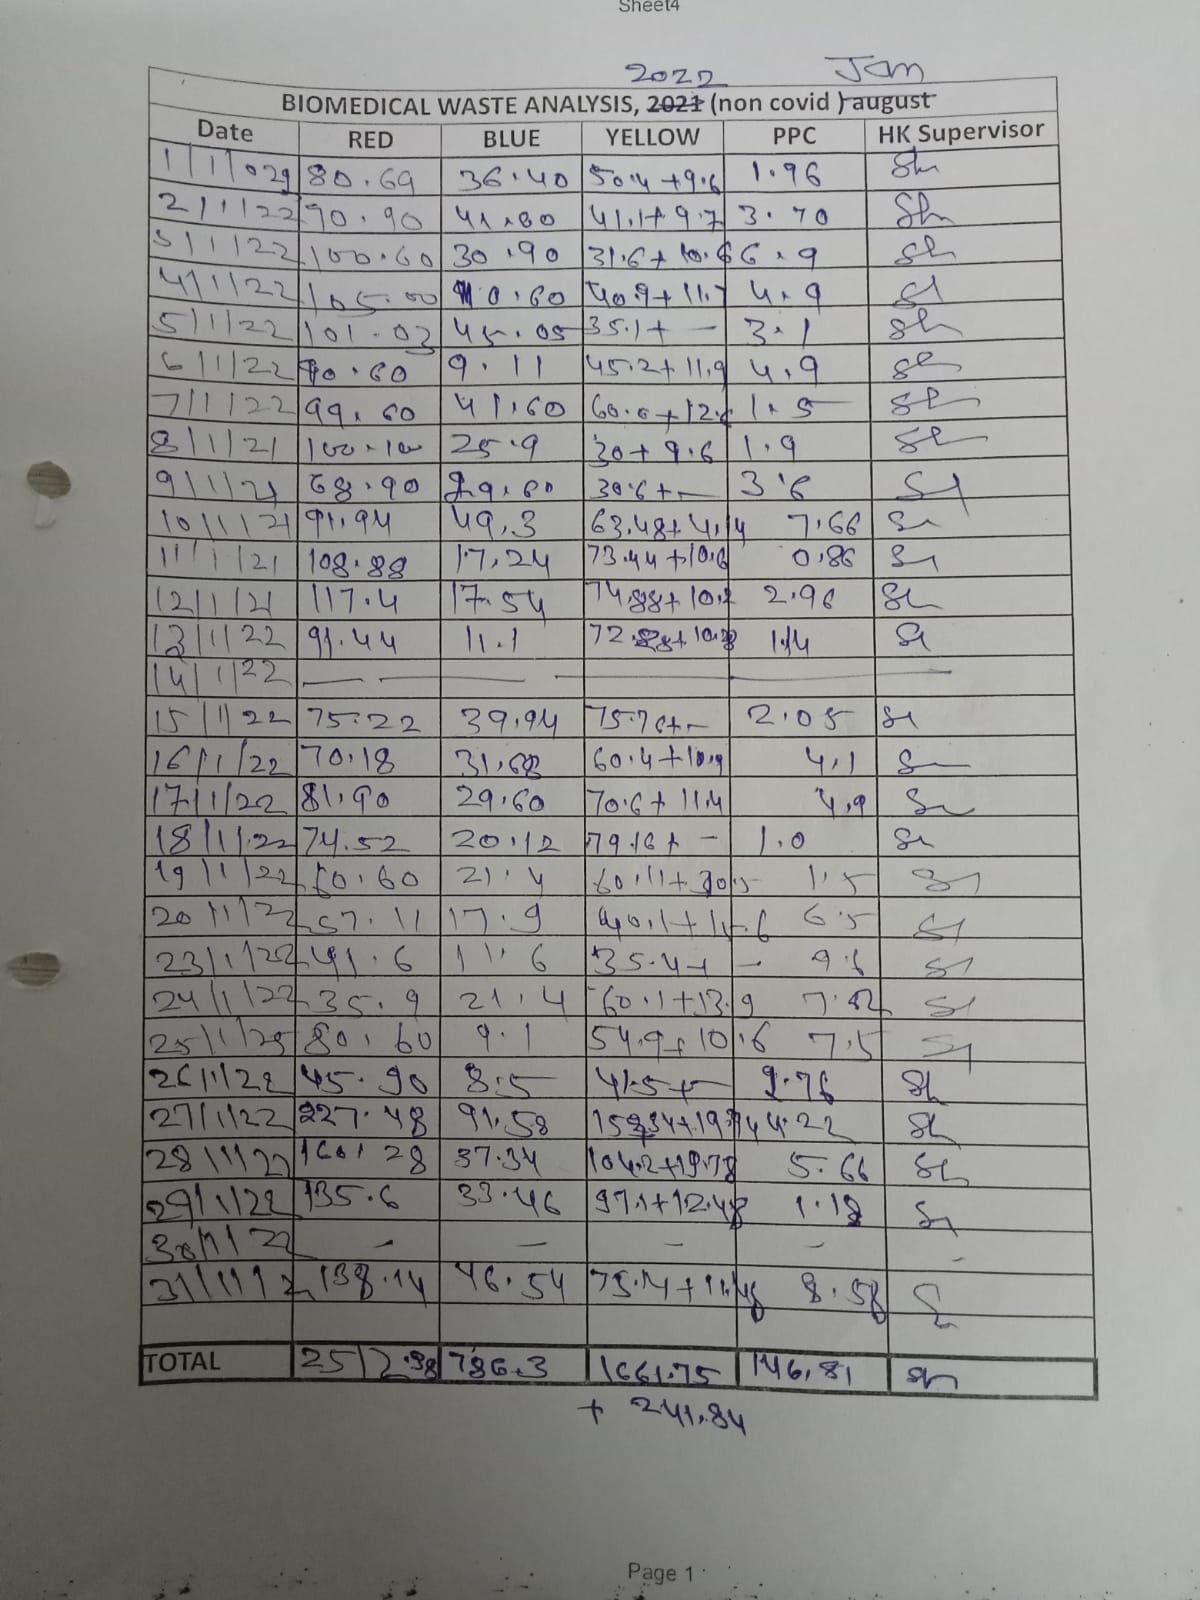 Sheet4
2022 Jan
BIOMEDICAL WASTE ANALYSIS, 2021 (non covid ) august
Date RED BLUE YELLOW PPC HK Supervisor
80.69 36.40 50.4 +9.6 1.96
2/1/22 90.90 41.80 41.1+ 9.7 3.70
30.90 31.6+ 10.6 6.9
4/1/22 105.00 40.9+ 11.7 4.9
5/1/22 101.03 45.05 35.1+ - 3.1
6/1/22 9.11 45.2+ 11.9 4.9
7/1/22 99.60 41.60 1.5
8/1/21 100.10 25.9 30+ 9.6 1.9
9/1/21 68.90 30.6+ - 3.6
10/1/21 91.94 49.3 63.48+ 4.14 7.66
11/1/21 108.88 17.24 73.44 +10.6 0.86
12/1/21 117.4 17.54 74.88+ 10.2 2.96
13/1/22 91.44 11.1 1.14
14/1/22 — — — —
15/1/22 75.22 39.94 2.05
16/1/22 70.18 31.68 60.4+10.9 4.1
17/1/22 81.90 29.60 70.6+ 11.4 4.9
18/1/22 74.52 20.12 79.16+ - 1.0
19/1/22 60.60 21.4 1.5
20/1/22 57.11 17.9 6.5
23/1/22 41.6 11.6 35.4+ -
24/1/22 35.9 21.4 60.1+13.9
80.60 9.1 54.9+ 10.6 7.5
26/1/22 45.90 8.5 41.5+- 2.76
27/1/22 227.48 91.58 4.22
28/1/22 160.28 37.34 104.2+19.78 5.66
29/1/22 135.6 33.46 97.1+12.48 1.18
30/1/22 - - - - -
138.14 46.54 75.14+11.48 8.58
TOTAL 2512.98 786.3 1661.75 146.81
+ 241.84
Page 1